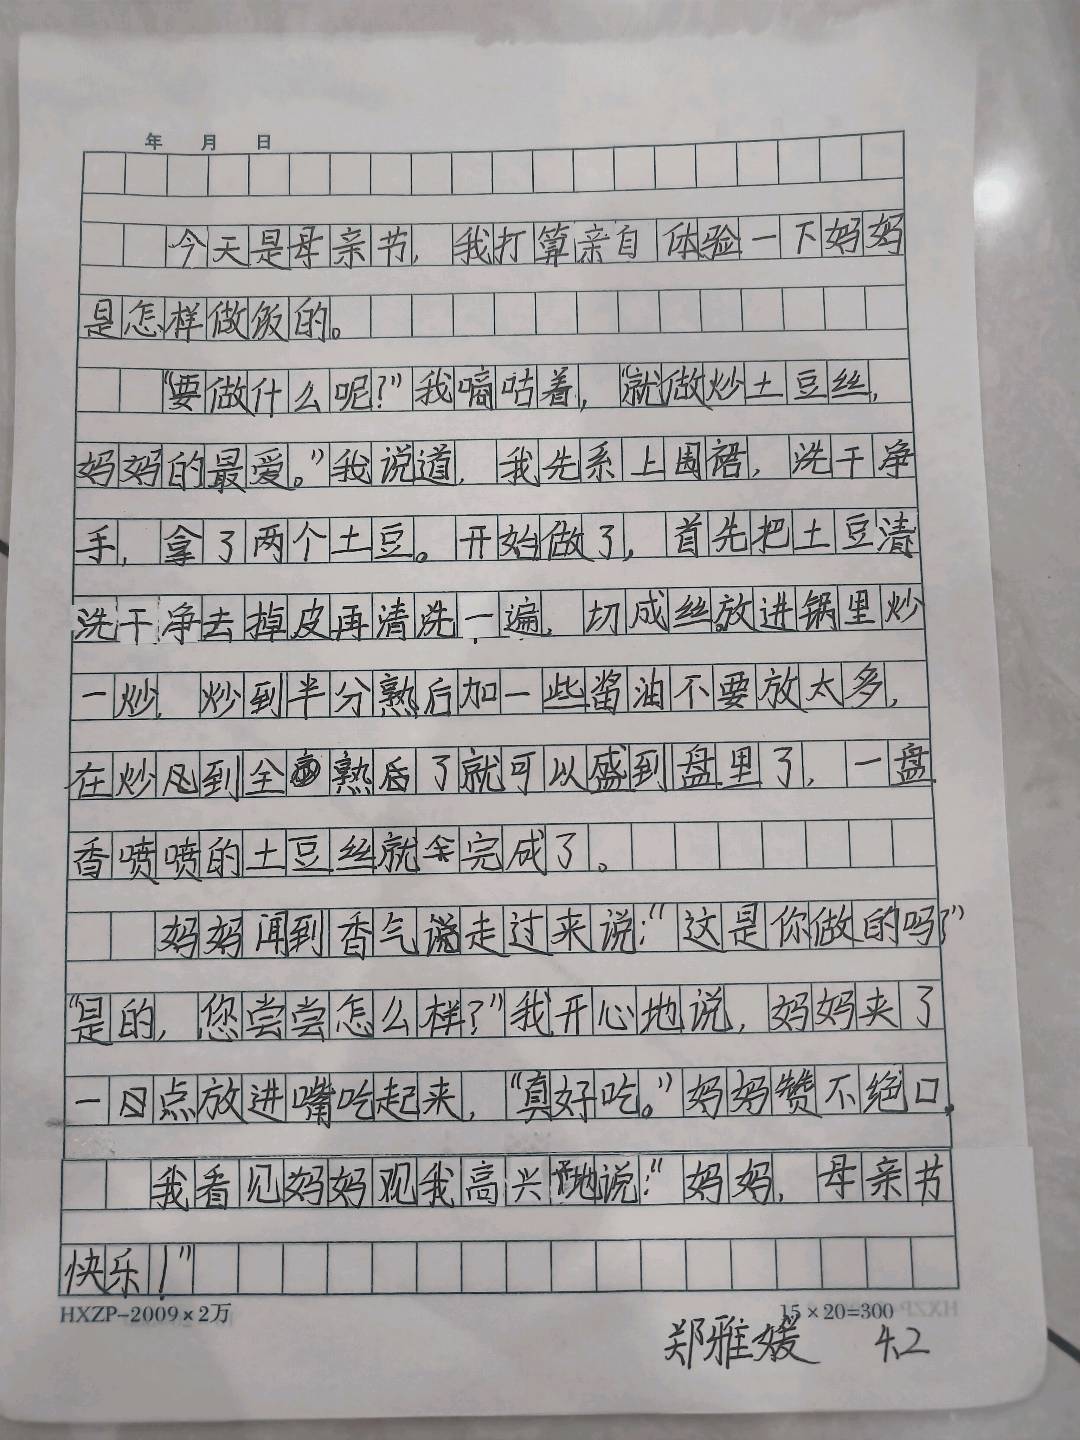 年 月 日
今天是母亲节，我打算亲自体验一下妈妈
是怎样做饭的。
“要做什么呢？”我嘀咕着，“就做炒土豆丝，
妈妈的最爱。”我说道，我先系上围裙，洗干净
手，拿了两个土豆。开始做了，首先把土豆清
洗干净去掉皮再清洗一遍，切成丝放进锅里炒
一炒，炒到半分熟后加一些酱油不要放太多，
在炒到全熟后了就可以盛到盘里了，一盘
香喷喷的土豆丝就完成了。
妈妈闻到香气走过来说：“这是你做的吗？”
“是的，您尝尝怎么样？”我开心地说，妈妈夹了
一点放进嘴吃起来，“真好吃。”妈妈赞不绝口。
我看见妈妈观我高兴地说：“妈妈，母亲节
快乐！”
HXZP-2009×2万 15×20=300
郑雅媛 4.2